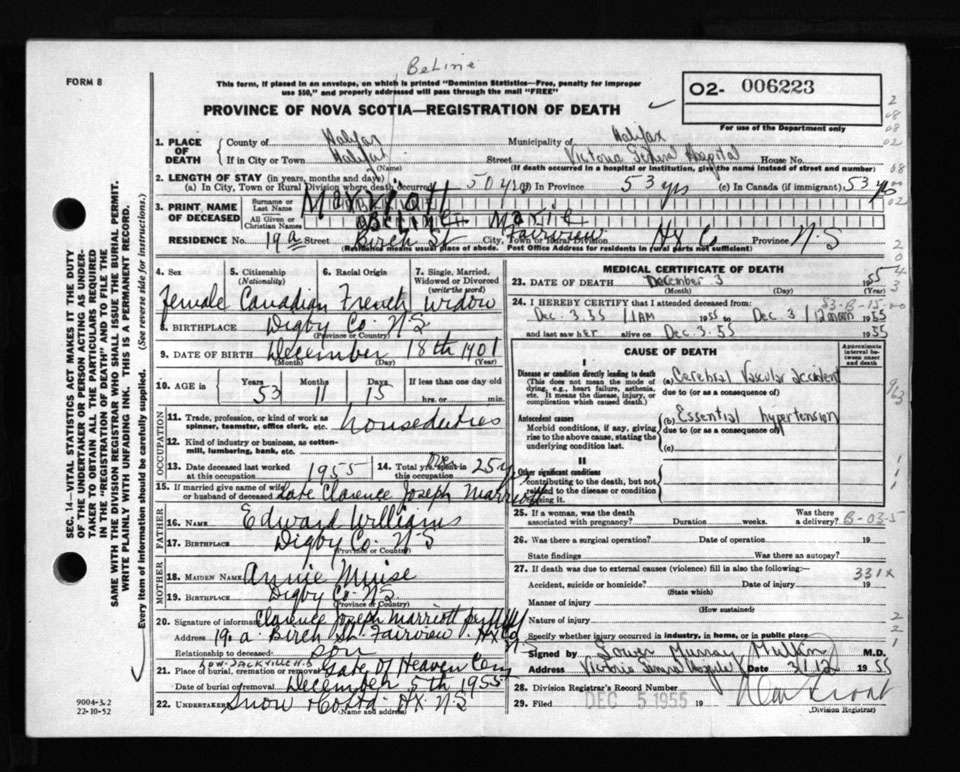 BeLine
FORM 8
This form, if placed in an envelope, on which is printed "Dominion Statistics—Free, penalty for improper
use $50," and properly addressed will pass through the mail "FREE"
O2- 006223
PROVINCE OF NOVA SCOTIA—REGISTRATION OF DEATH
For use of the Department only
1. PLACE OF DEATH
County of Halifax Municipality of Halifax
If in City or Town Halifax Street Victoria General Hospital House No.
(Name) (If death occurred in a hospital or institution, give the name instead of street and number)
2. LENGTH OF STAY (in years, months and days)
(a) In City, Town or Rural Division where death occurred 50 yrs (b) In Province 53 yrs (c) In Canada (if immigrant) 53 yrs
3. PRINT NAME OF DECEASED
Surname or Last Name Marriott
All Given or Christian Names Beline Marie
RESIDENCE No. 19 a Street Birch St City, Town or Rural Division Fairview Hx Co Province N-S
(Residence means usual place of abode. Post Office Address for residents in rural parts not sufficient)
4. Sex 5. Citizenship (Nationality) 6. Racial Origin 7. Single, Married, Widowed or Divorced (write the word)
female Canadian French widow
8. BIRTHPLACE Digby Co. N-S
(Province or Country)
9. DATE OF BIRTH December 18th 1901
(Month) (Day) (Year)
10. AGE in Years Months Days If less than one day old
53 11 15 hrs. or min.
OCCUPATION
11. Trade, profession, or kind of work as spinner, teamster, office clerk, etc. houseduties
12. Kind of industry or business, as cotton-mill, lumbering, bank, etc.
13. Date deceased last worked at this occupation 1955 14. Total yrs. spent in this occupation 25 y
15. If married give name of wife or husband of deceased Late Clarence Joseph Marriott
FATHER
16. NAME Edward Williams
17. BIRTHPLACE Digby Co. N-S
(Province or Country)
MOTHER
18. MAIDEN NAME Annie Muise
19. BIRTHPLACE Digby Co. N.S
(Province or Country)
20. Signature of informant Clarence Joseph Marriott per
Address 19. a. Birch St. Fairview. Hx Co
Relationship to deceased son
Low-Sackville N.S
21. Place of burial, cremation or removal Gate of Heaven Cem
Date of burial or removal December 5th 1955
22. Undertaker Snow & Co Ltd Hx. N-S
(Name and address)
MEDICAL CERTIFICATE OF DEATH
23. DATE OF DEATH December 3 1955
(Month) (Day) (Year)
24. I HEREBY CERTIFY that I attended deceased from
Dec. 3. 55 11AM 1955 to Dec 3 1955
and last saw her alive on Dec. 3. 55 1955
CAUSE OF DEATH
Approximate interval between onset and death
I
Disease or condition directly leading to death
(This does not mean the mode of dying, e.g., heart failure, asthenia, etc. It means the disease, injury, or complication which caused death.)
(a) Cerebral Vascular accident
due to (or as a consequence of)
Antecedent causes
Morbid conditions, if any, giving rise to the above cause, stating the underlying condition last.
(b) Essential hypertension
due to (or as a consequence of)
(c)
II
Other significant conditions
contributing to the death, but not related to the disease or condition causing it.
25. If a woman, was the death associated with pregnancy? Duration weeks. Was there a delivery? B-03-5
26. Was there a surgical operation? Date of operation 19
State findings Was there an autopsy?
27. If death was due to external causes (violence) fill in also the following:
331X
Accident, suicide or homicide? Date of injury 19
(State which)
Manner of injury
(How sustained)
Nature of injury
Specify whether injury occurred in industry, in home, or in public place
Signed by Murray M.D.
Address Victoria General Hospital Date 3/12 1955
28. Division Registrar's Record Number
29. Filed DEC 5 1955 19
(Division Registrar)
SEC. 14—VITAL STATISTICS ACT MAKES IT THE DUTY
OF THE UNDERTAKER OR PERSON ACTING AS UNDER-
TAKER TO OBTAIN ALL THE PARTICULARS REQUIRED
IN THE "REGISTRATION OF DEATH" AND TO FILE THE
SAME WITH THE DIVISION REGISTRAR WHO SHALL ISSUE THE BURIAL PERMIT.
WRITE PLAINLY WITH UNFADING INK. THIS IS A PERMANENT RECORD.
Every item of information should be carefully supplied. (See reverse side for instructions.)
9004-3.2
22-10-52